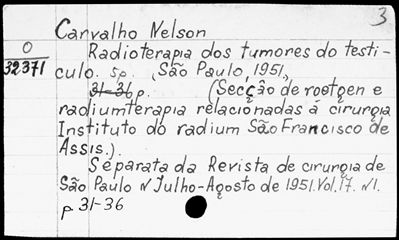 3
Carvalho Nelson
0
32371
Radioterapia dos tumores do testi-
culo. sp. São Paulo, 1951,
31-36 p. (Secção de roetgen e
radiumterapia relacionadas á cirurgia
Instituto do radium São Francisco de
Assis.).
Separata da Revista de cirurgia de
São Paulo N Julho-Agosto de 1951. Vol. 17. N1.
p 31-36